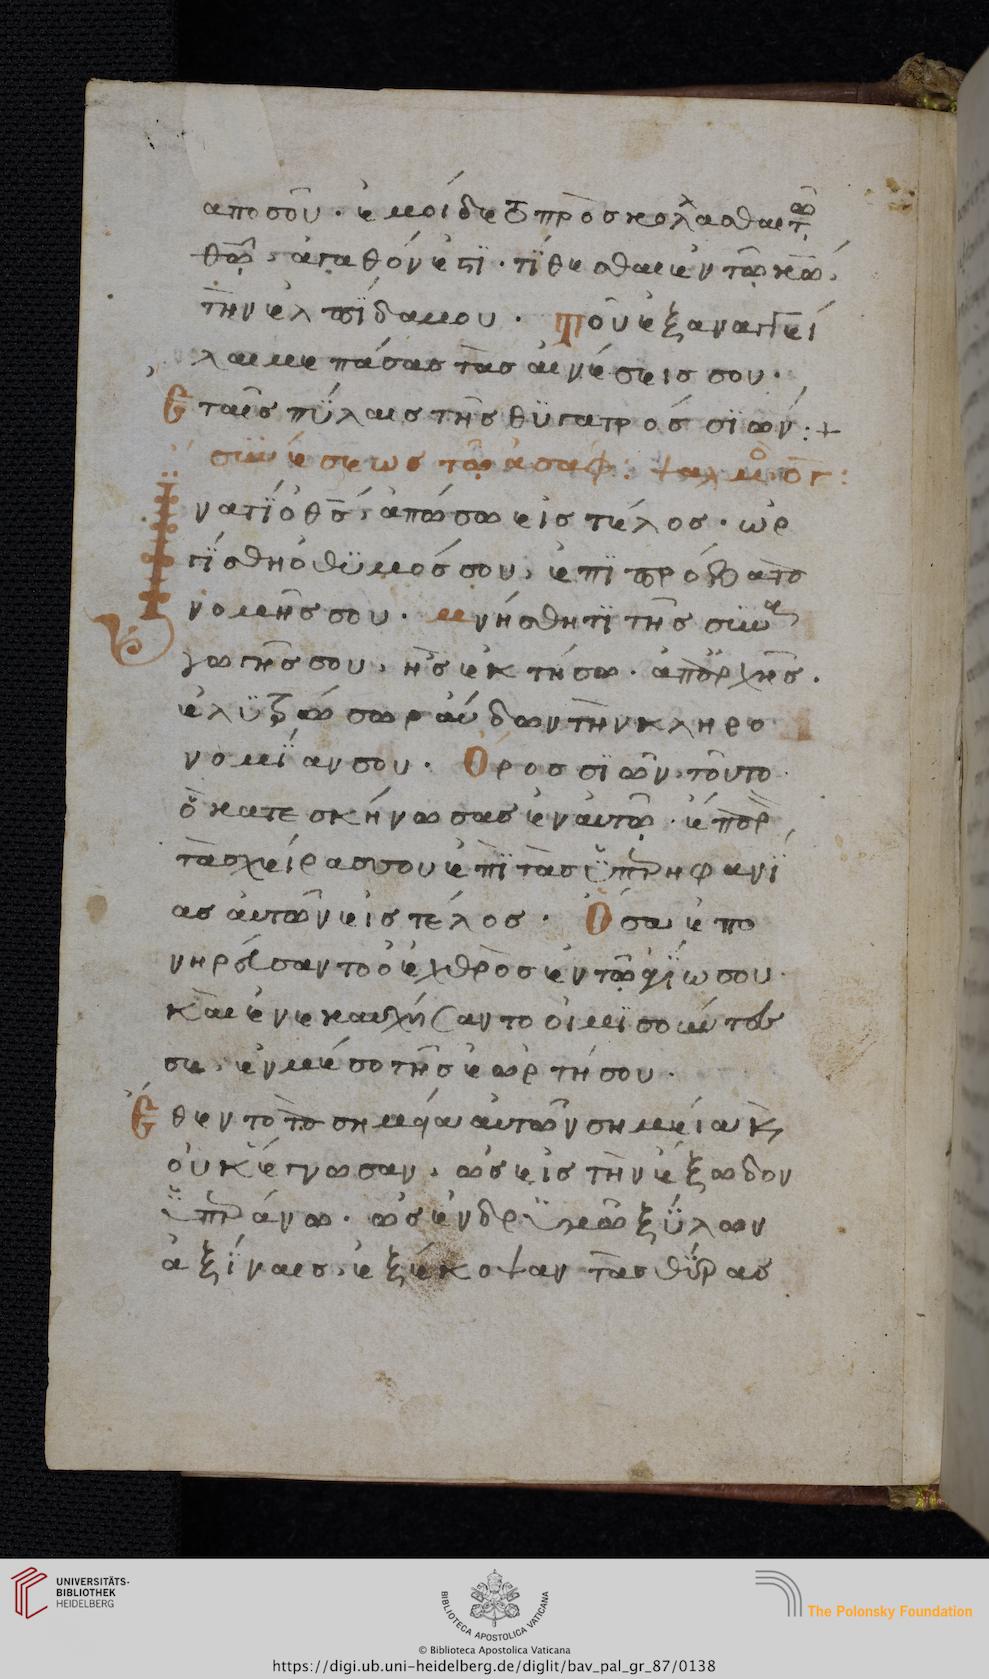 απο σοῦ · ἐμοὶ δὲ τὸ προσκολλᾶσθαι τῶ
θῶ, ἀγαθόν ἐστϊ · τίθεσθαι ἐν τῶ κῶ,
τὴν ἐλπΐδα μου · Τοῦ ἐξαναγγεί
λαι με πάσας τὰς αἰνέσεις σου ·
Ἐ ταῖς πύλαις τῆς θϋγατρός σϊών : +
σϋνέσεως τῶ ἀσάφ : ψαλμο ογ :
Ϊνατΐ ὁ θς, ἀπώσω εἰς τέλος · ὠρ
γΐσθη ὁ θϋμός σου, ἐπϊ πρόβατα
νομῆς σου · μνήσθητϊ τῆς σϋνα
γωγῆς σου, ἧς ἐκτήσω · ἀπαρχῆς ·
ἐλϋτρώσω ράύδων τὴν κληρο
νομΐαν σου · Ὄρος σϊὼν, τοῦτο
ὃ κατεσκήνωσας ἐν αυτῶ · ἔπαρ
τὰς χείρας σου ἐπϊ τὰς ϋπερηφανΐ
ας ἀυτῶν εἰς τέλος · Ὅσα ἐπο
νηρεύσαντο ὁ ἐχθρὸς ἐν τῶ ἁγΐω σου
καὶ ἐνεκαυχήσαντο ὁι μϊσοῦντές
σε, ἐν μέσο τῆς ἑωρτή σου ·
Ἔθεντο τὰ σημεῖα ἀυτῶν σημεία κ
ὀυκ ἔγνωσαν, ὡς εἰς τὴν ἔξωδον
ϋπεράνω · ὡς ἐν δρϋμῶ ξΰλων
ἀξΐναις, ἐξέκοψαν τὰς θΰρας
UNIVERSITÄTS-
BIBLIOTHEK
HEIDELBERG
BIBLIOTECA APOSTOLICA VATICANA
The Polonsky Foundation
© Biblioteca Apostolica Vaticana
https://digi.ub.uni-heidelberg.de/diglit/bav_pal_gr_87/0138